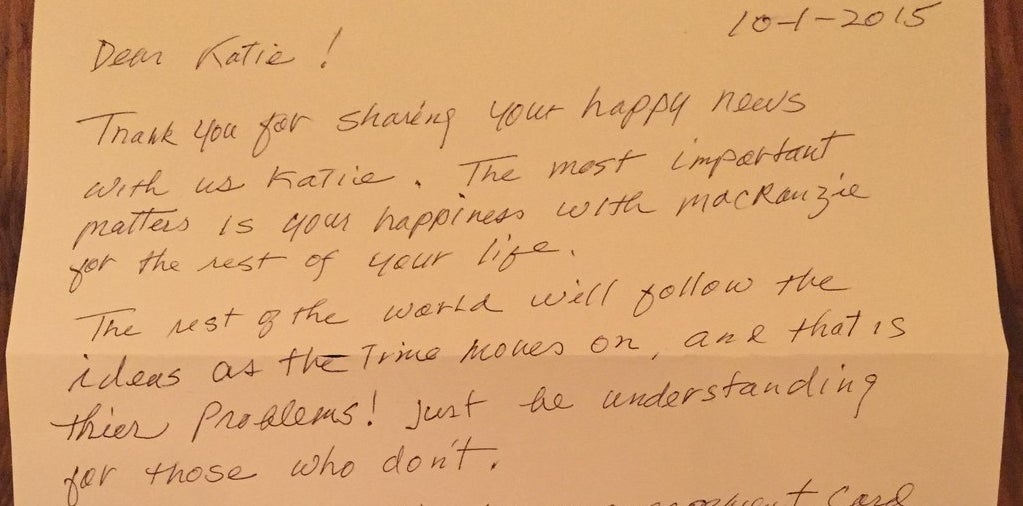 10-1-2015
Dear Katie !
Thank you for sharing your happy news
with us Katie . The most important
matters is your happiness with macKanzie
for the rest of your life.
The rest of the world will follow the
ideas as the Time moves on, and that is
thier Problems! just be understanding
for those who don't.
Card